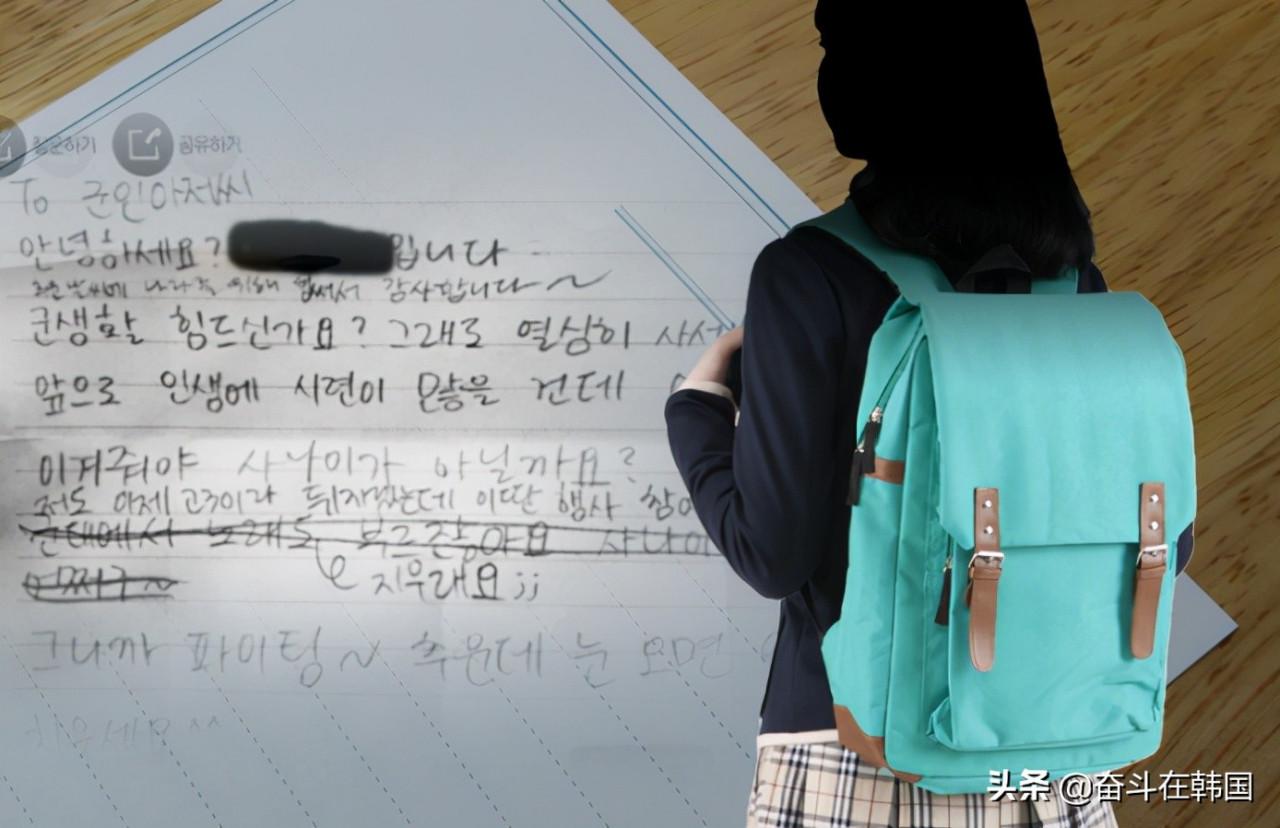 공유하기
To 군인아저씨
안녕하세요? 입니다
추운날씨에 나라를 위해 힘써서 감사합니다~
군생활 힘드신가요? 그래도 열심히 사세
앞으로 인생에 시련이 많을 건데
이겨줘야 사나이가 아닐까요?
저도 이제 고3이라 뒤지겠는데 이딴 행사 참
군대에서 노래도 부르잖아요 사나이
어쩌구~
지우래요;;
그니까 파이팅~ 추운데 눈 오면
치우세요^^
头条 @奋斗在韩国